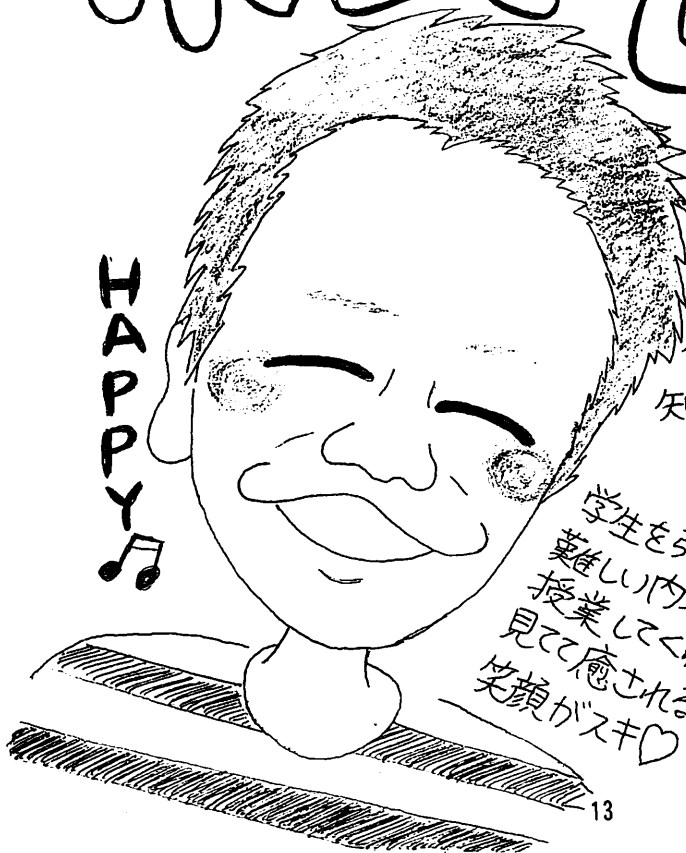 HAPPY
知
学生を
難しい内
授業してく
見てて癒される
笑顔がスキ♡
13